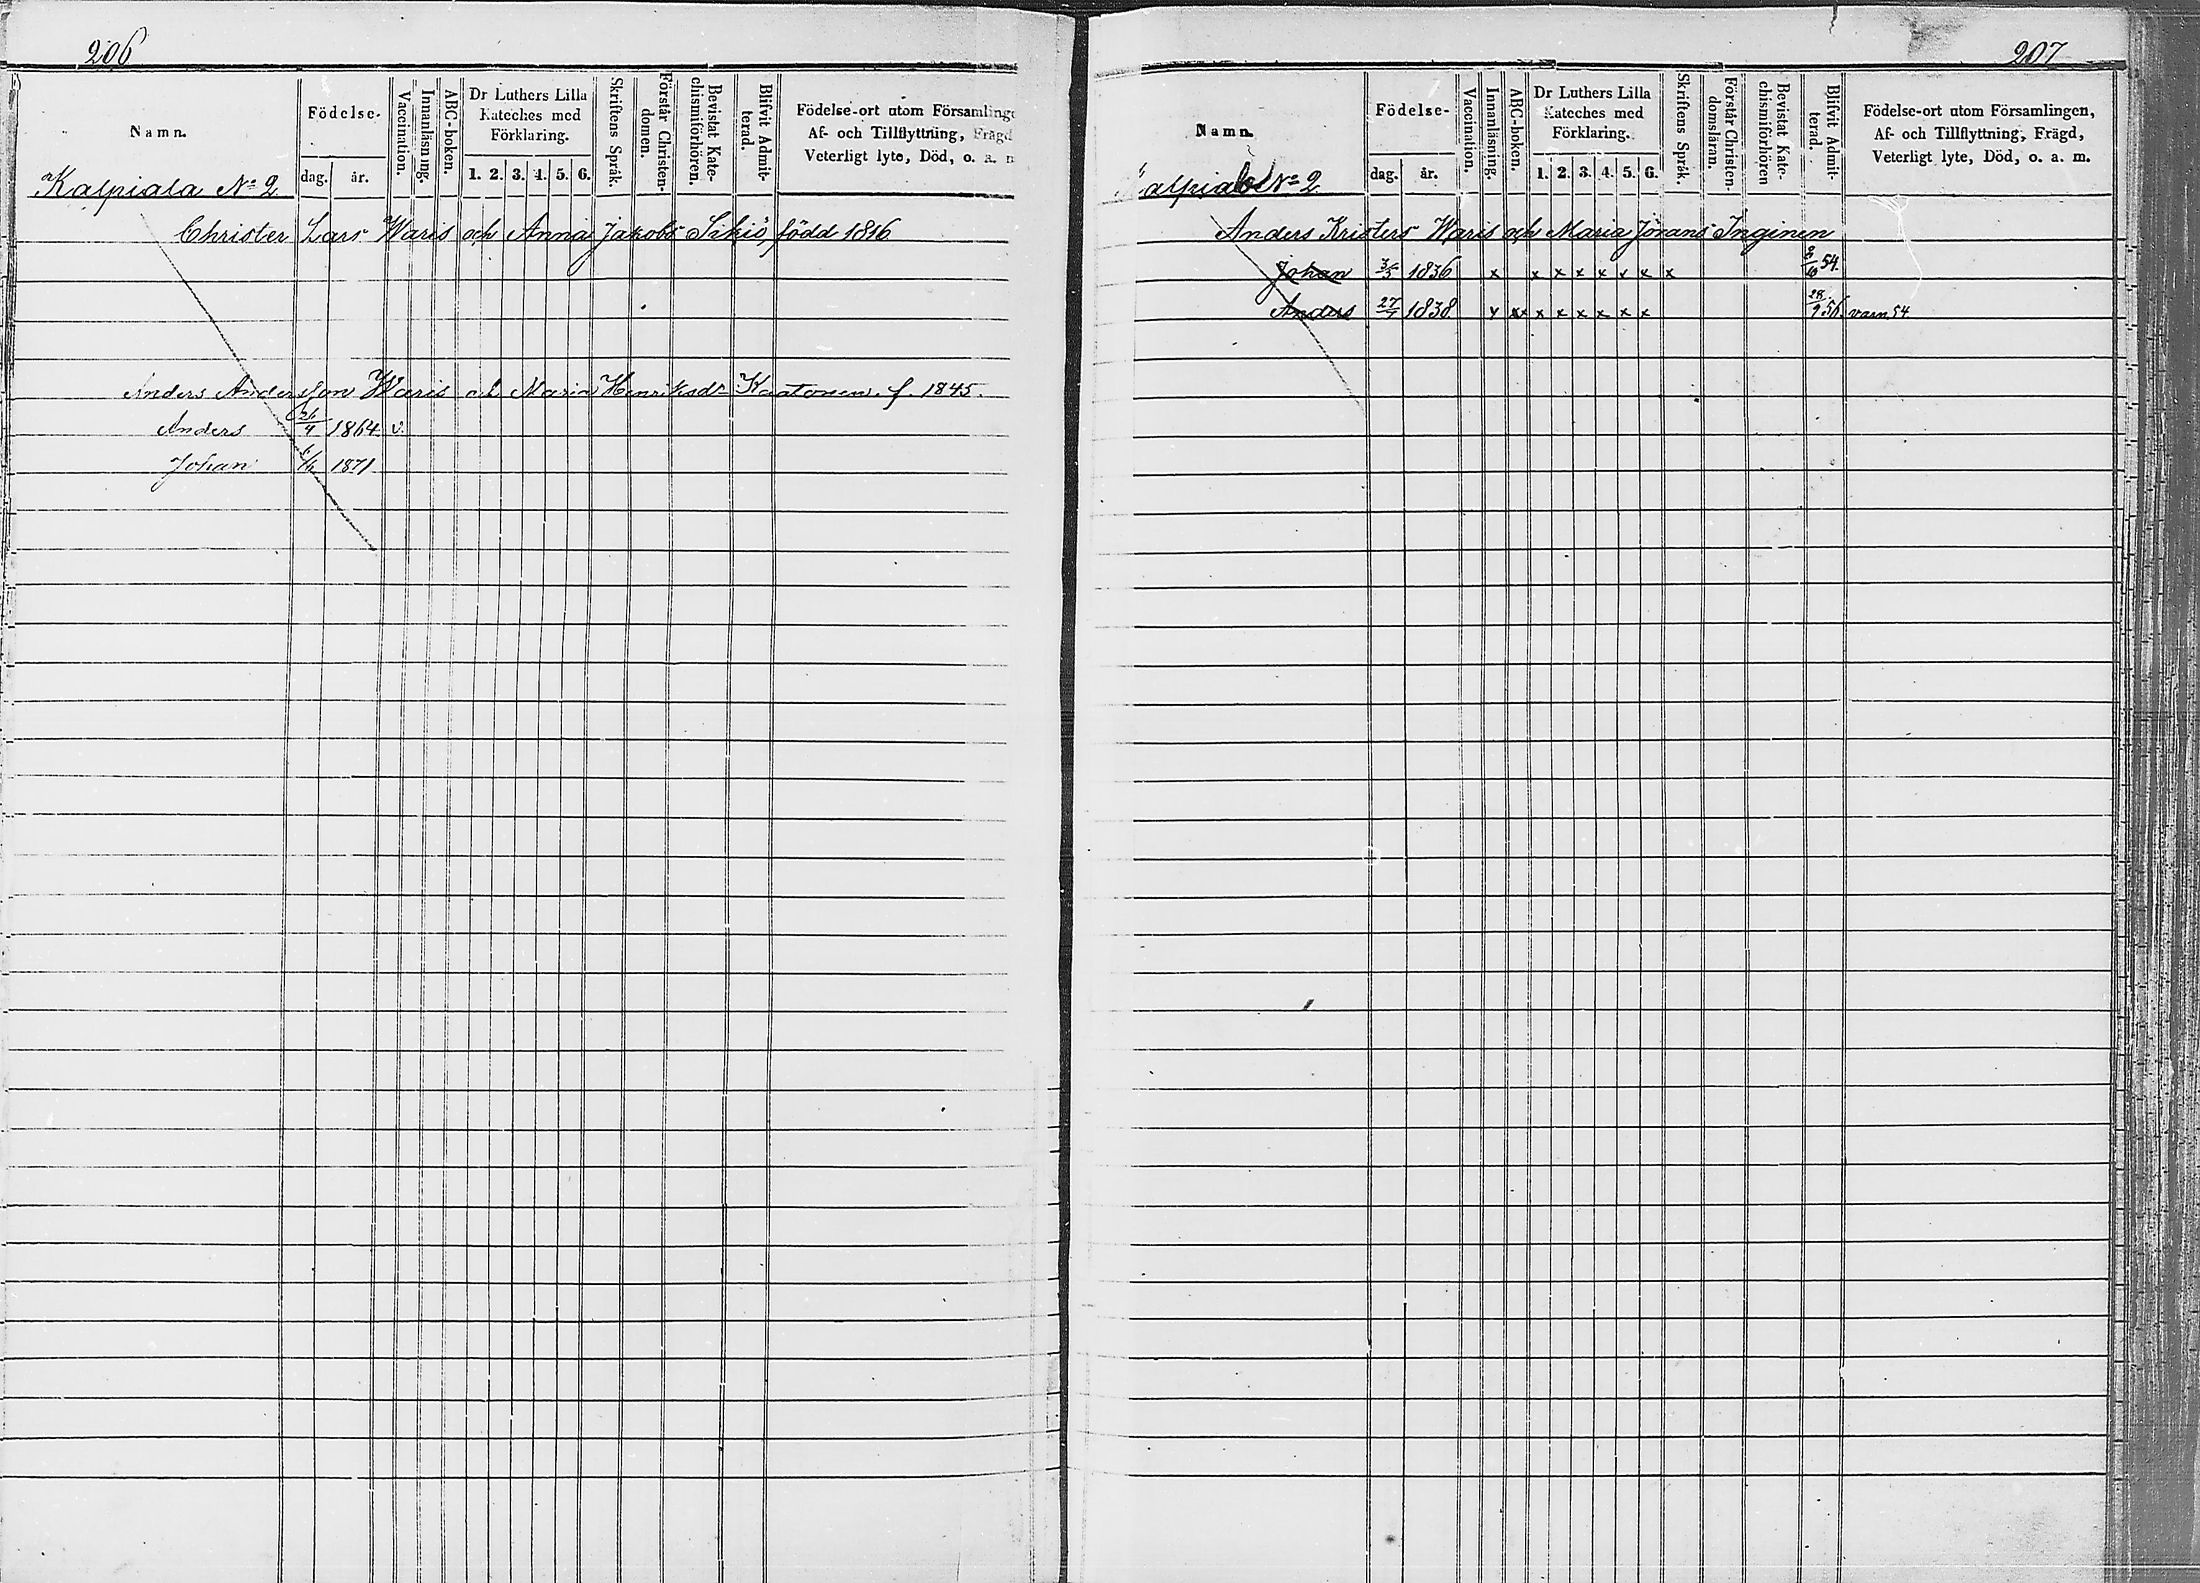 206
Namn.
Födelse-
dag. år.
Vaccination.
Innanläsning.
ABC-boken.
Dr Luthers Lilla
Kateches med
Förklaring.
1. 2. 3. 4. 5. 6.
Skriftens Språk.
Förstår Christen-
domen.
Bevistat Kate-
chismiförhören.
Blifvit Admit-
terad.
Födelse-ort utom Församlinge
Af- och Tillflyttning, Frägd
Veterligt lyte, Död, o. a. m
Kalpiala No 2
Christer Lars Waris och Anna Jakobs Sikiö, född 1816
Anders Andersson Waris och Maria Henriksdr Kaatonen. f. 1845.
Anders 26/4 1864. v.
Johan 1871
207
Namn.
Födelse-
dag. år.
Vaccination.
Innanläsning.
ABC-boken.
Dr Luthers Lilla
Kateches med
Förklaring.
1. 2. 3. 4. 5. 6.
Skriftens Språk.
Förstår Christen-
domsläran.
Bevistat Kate-
chismiförhören
Blifvit Admit-
terad.
Födelse-ort utom Församlingen,
Af- och Tillflyttning, Frägd,
Veterligt lyte, Död, o. a. m.
Kalpiala No 2
Anders Kristers Waris och Maria Jörans Inginen
Johan 3/5 1836 x x x x x x x x 54.
Anders 27/7 1838 x x x x x x x x 28/9 56. varn. 54.